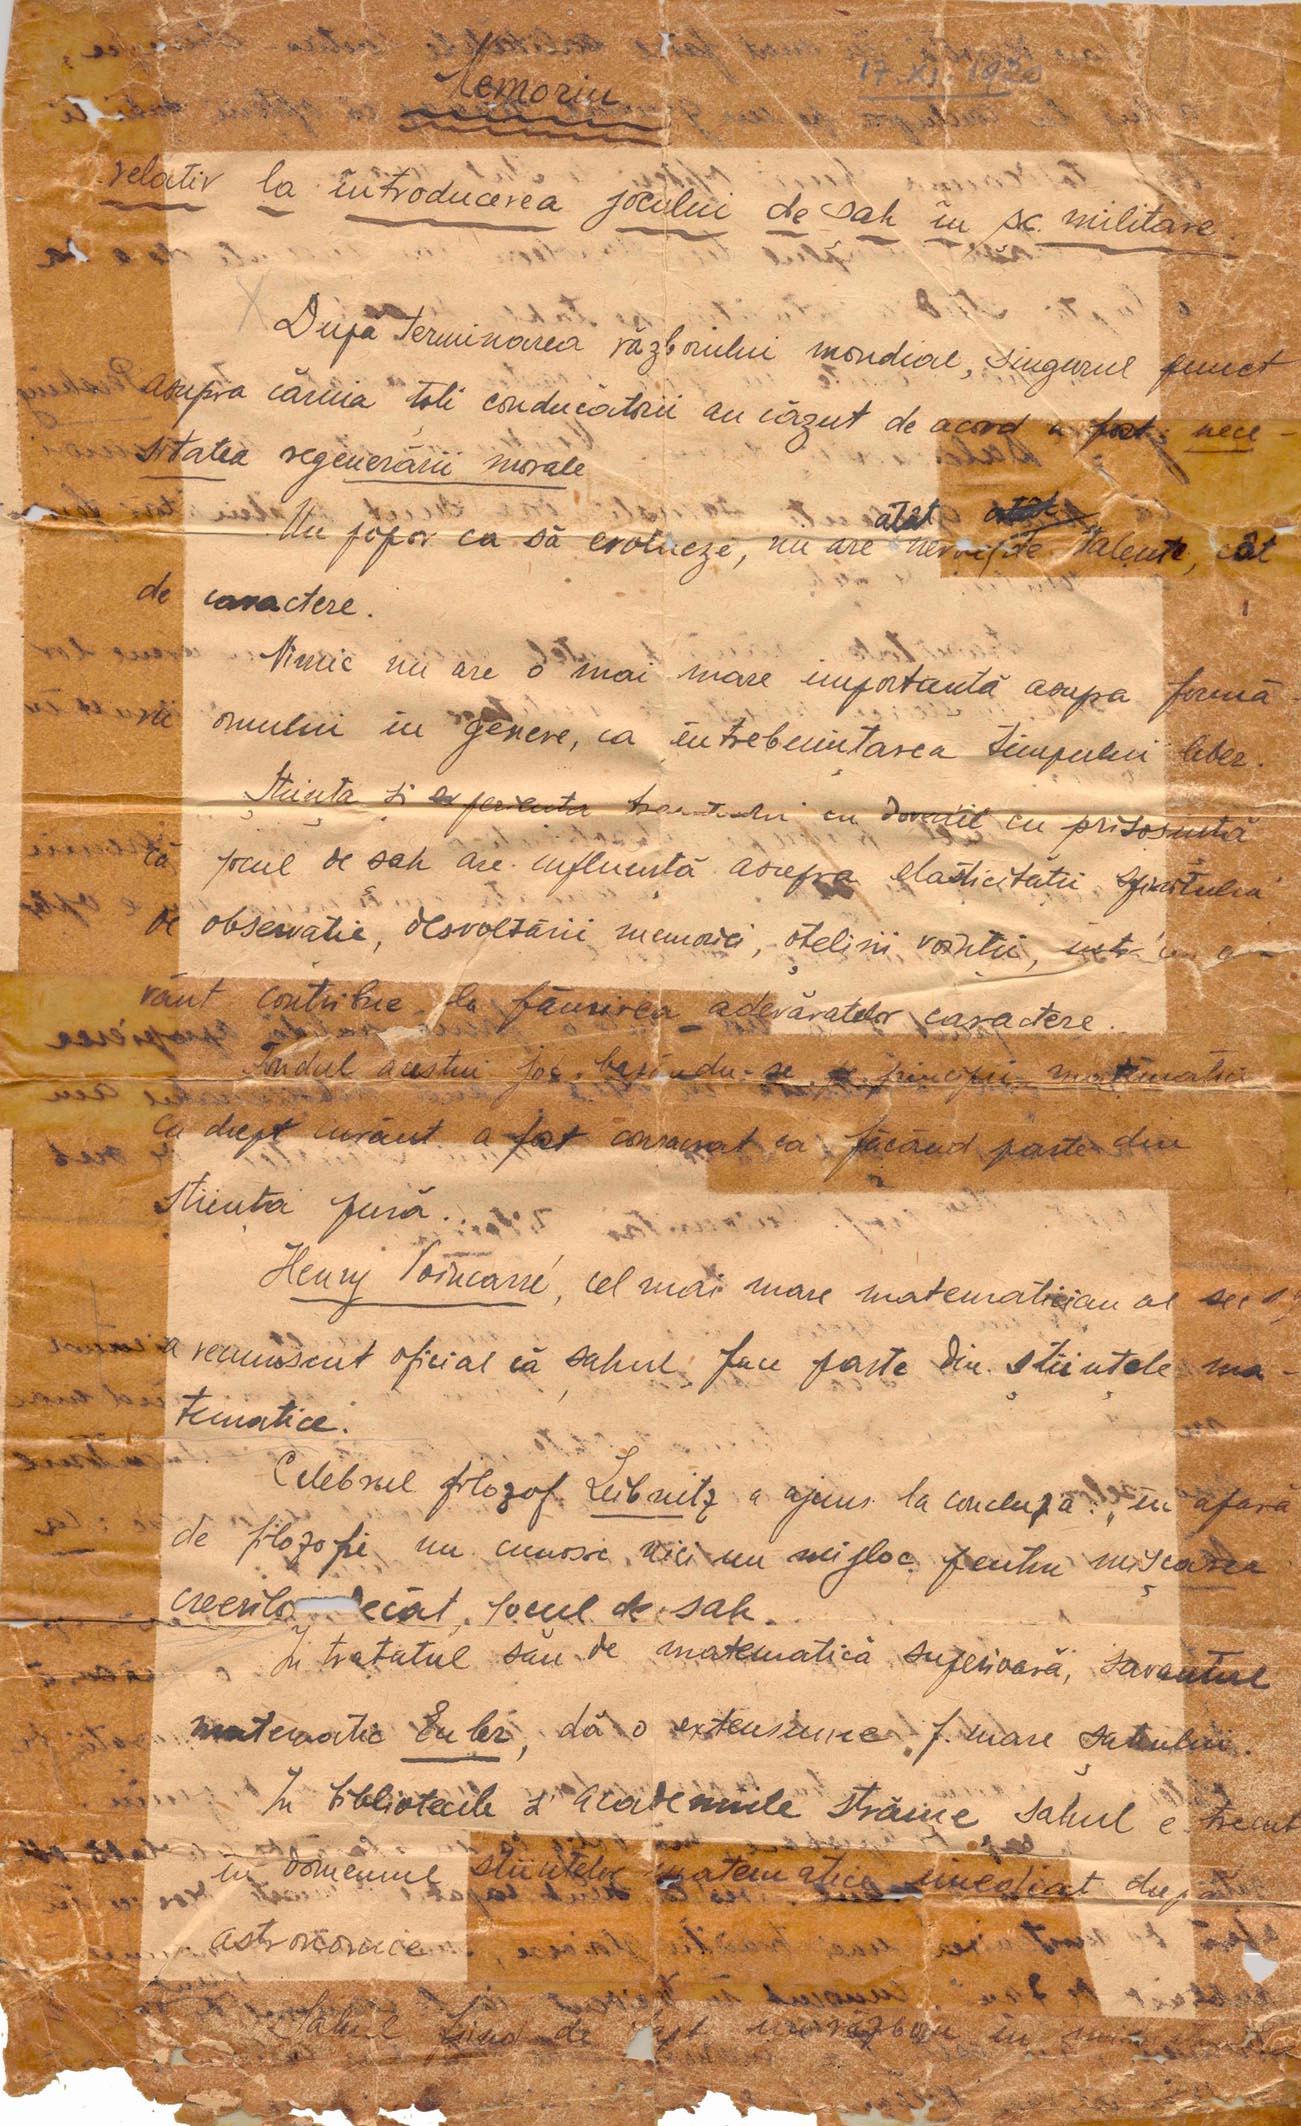 Memoriu
17.XI.1920
relativ la introducerea jocului de sah în sc. militare.
După terminarea războiului mondial, singurul punct
asupra căruia toți conducătorii au căzut de acord a fost nece-
sitatea regenerării morale
Un popor ca să evolueze, nu are atât nevoie de talente, cât
de caractere.
Nimic nu are o mai mare importantă asupra formă-
rii omului in genere, ca întrebuințarea timpului liber.
Știința și experienta trecutului au dovedit cu prisosintă
că jocul de sah are influentă asupra elasticitătii spiritului
de observatie, desvoltării memoriei, oțelirii vointii, într'un cu-
vânt contribue la făurirea adevăratelor caractere.
Fondul acestui joc bazându-se pe principii matematice
Cu drept cuvânt a fost consacrat ca făcând parte din
stiinta pură.
Henry Poincarré, cel mai mare matematician al sec 19
a recunoscut oficial că șahul face parte din stiințele ma-
tematice.
Celebrul filozof Leibnitz a ajuns la concluzia: „in afară
de filozofie nu cunosc nici un mijloc pentru mișcarea
creerilo decât jocul de sah.
In tratatul său de matematică superioară, savantul
matematic Euler, dă o extensiune f. mare șahului.
In bibliotecile și academiile străine sahul e trecut
in domeniul stiintelor matematice imediat după
astronomie
Sahul fiind de fapt un război in